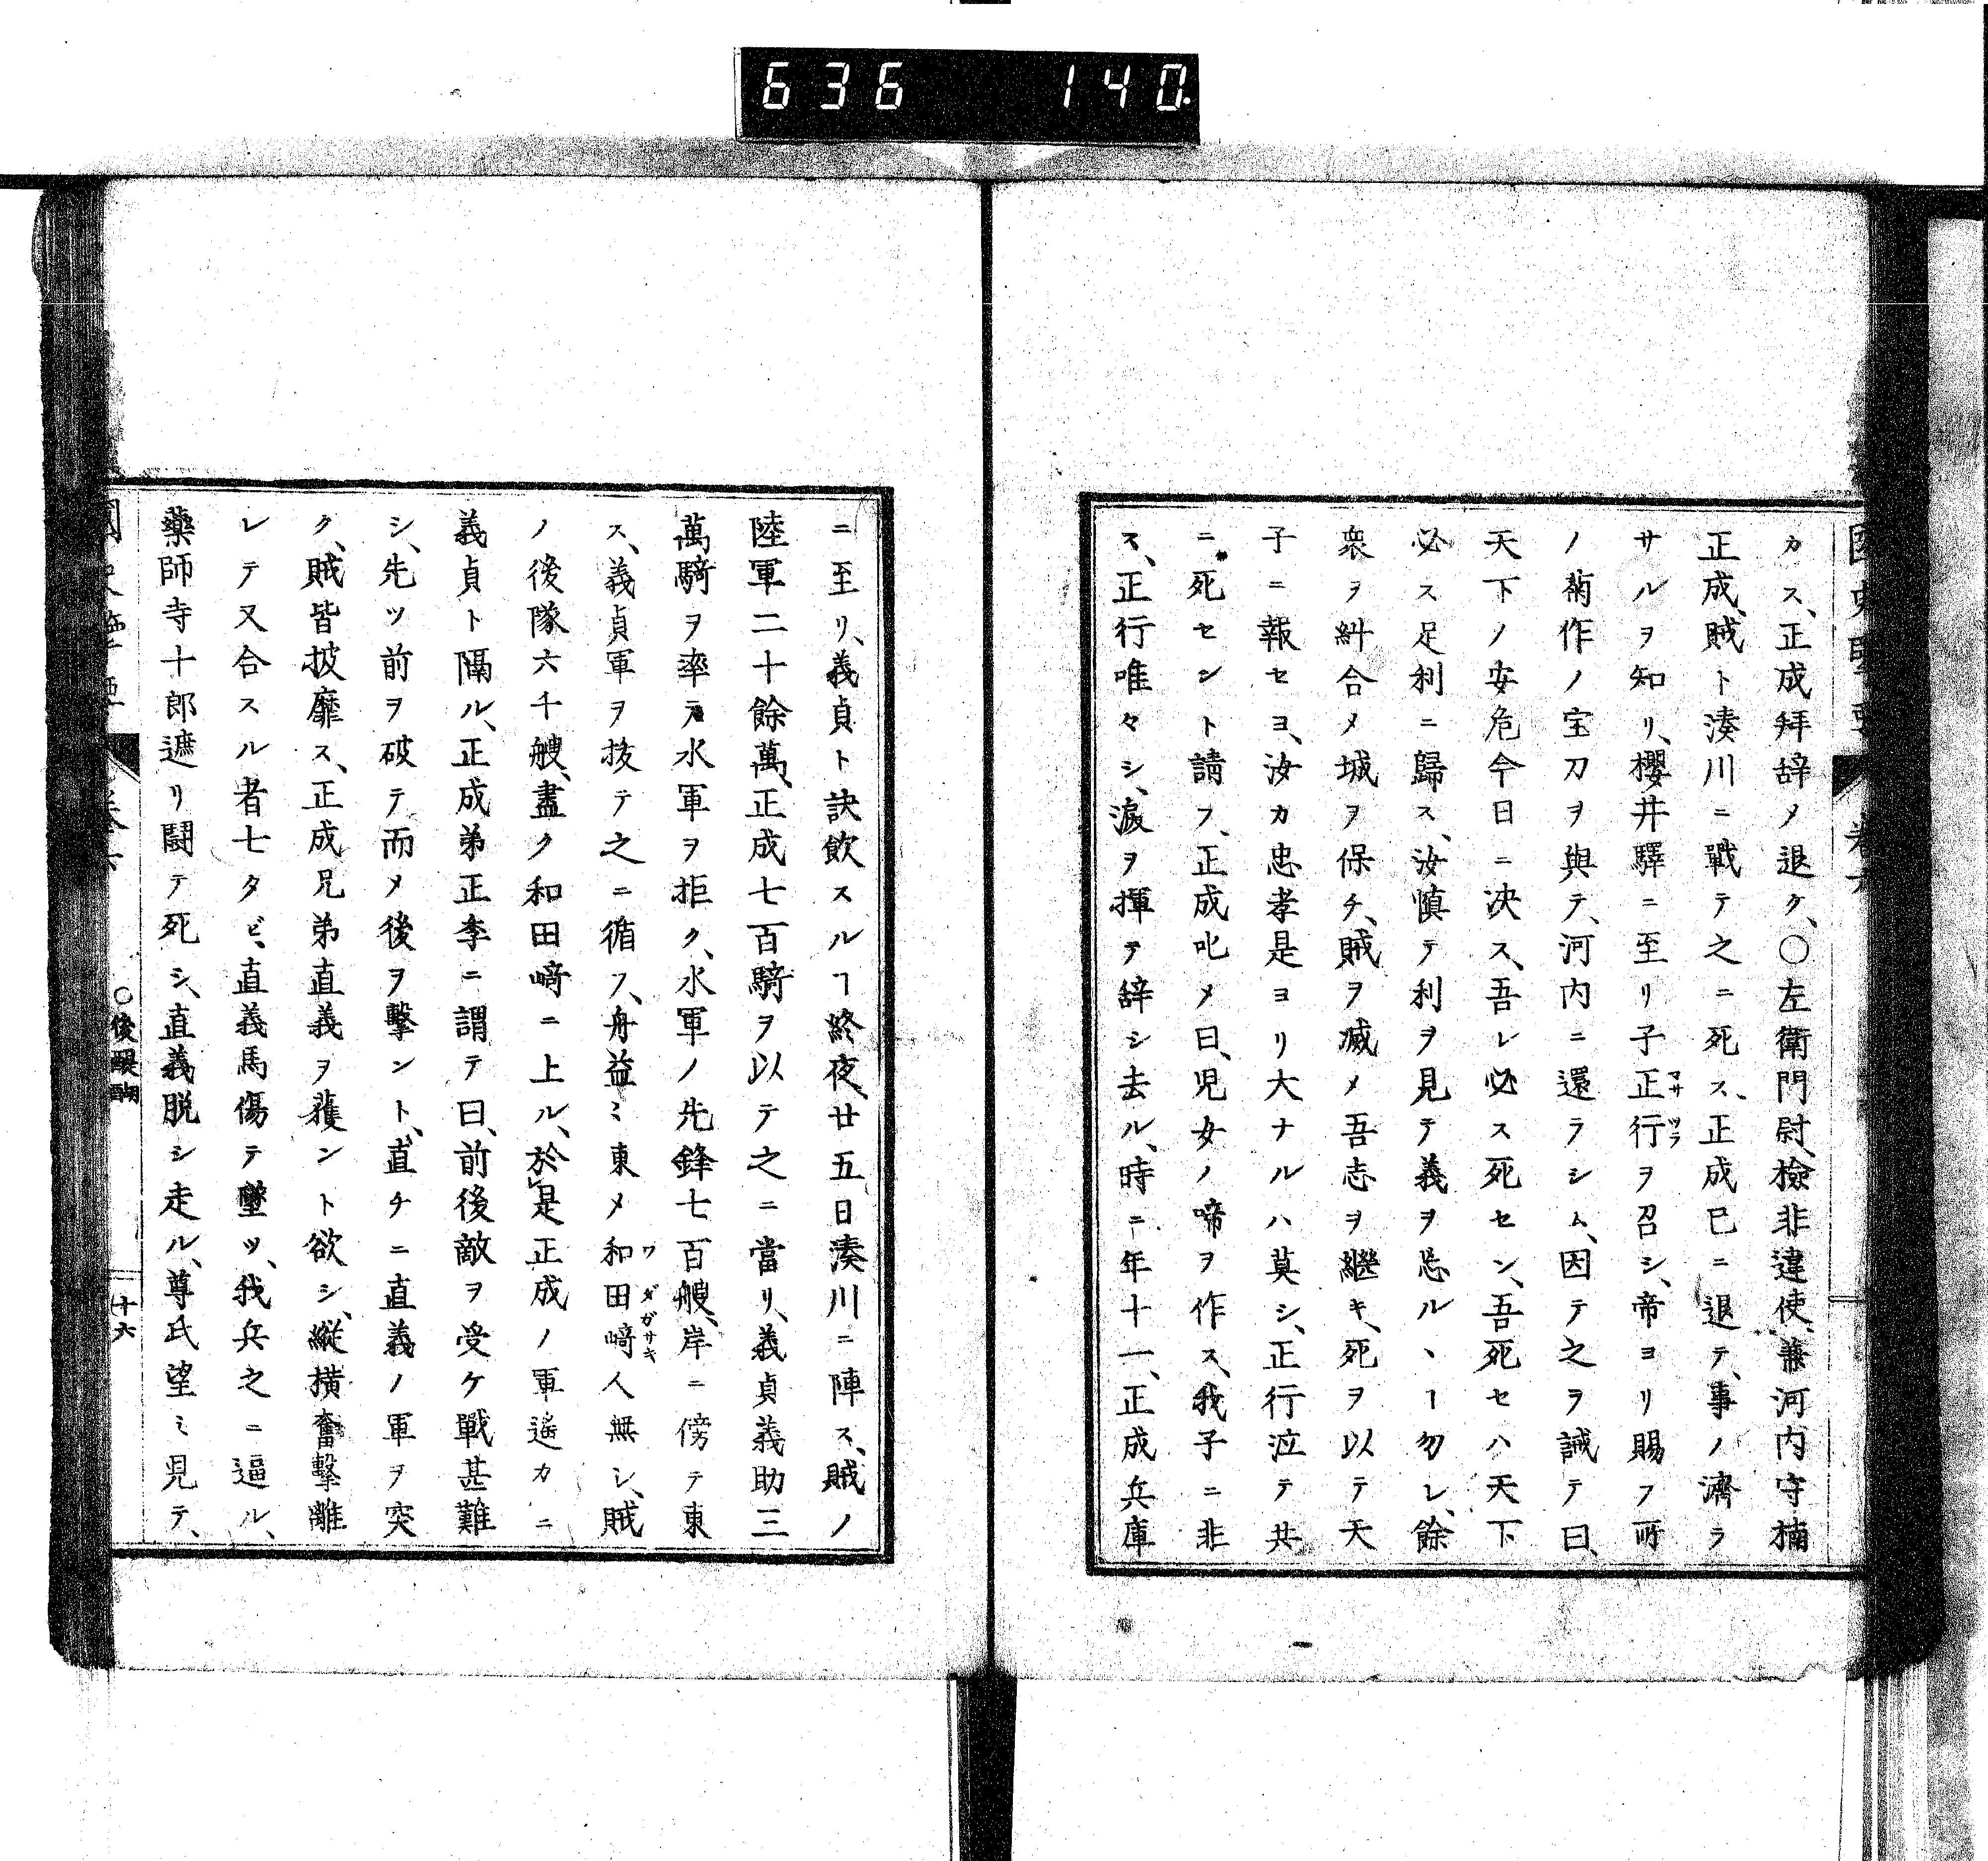 636 140
カス、正成拜辞メ退ク、○左衛門尉、檢非違使、兼河内守楠
正成、賊ト湊川ニ戰テ之ニ死ス、正成已ニ退テ、事ノ濟ラ
サルヲ知リ、櫻井驛ニ至リ子正行ヲ召シ、帝ヨリ賜フ所
マサツラ
ノ菊作ノ宝刀ヲ與テ、河内ニ還ラシム、因テ之ヲ誡テ曰、
天下ノ安危今日ニ决ス、吾レ必ス死セン、吾死セハ天下
必ス足利ニ歸ス、汝慎テ利ヲ見テ義ヲ忘ルヽヿ勿レ、餘
衆ヲ糾合メ城ヲ保チ、賊ヲ滅メ吾志ヲ繼キ、死ヲ以テ天
子ニ報セヨ、汝カ忠孝是ヨリ大ナルハ莫シ、正行泣テ共
ニ死セント請フ、正成叱メ曰、児女ノ啼ヲ作ス、我子ニ非
ス、正行唯々シ、涙ヲ揮テ辞シ去ル、時ニ年十一、正成兵庫
ニ至リ、義貞ト訣飲スルヿ終夜、廿五日湊川ニ陣ス、賊ノ
陸軍二十餘萬、正成七百騎ヲ以テ之ニ當リ、義貞義助三
萬騎ヲ率テ水軍ヲ拒ク、水軍ノ先鋒七百艘、岸ニ傍テ東
ス、義貞軍ヲ抜テ之ニ循フ、舟益ミ東メ和田﨑人無シ、賊
ワダガサキ
ノ後隊六千艘、盡ク和田﨑ニ上ル、於是正成ノ軍遙カニ
義貞ト隔ル、正成弟正季ニ謂テ曰、前後敵ヲ受ケ戰甚難
シ、先ツ前ヲ破テ而メ後ヲ擊ント、直チニ直義ノ軍ヲ突
ク、賊皆披靡ス、正成兄弟直義ヲ蒦ント欲シ、縱横奮擊離
レテ又合スル者七タビ、直義馬傷テ墜ツ、我兵之ニ逼ル、
藥師寺十郎遮リ鬪テ死シ、直義脱シ走ル、尊氏望ミ見テ、
○後醍醐
十六